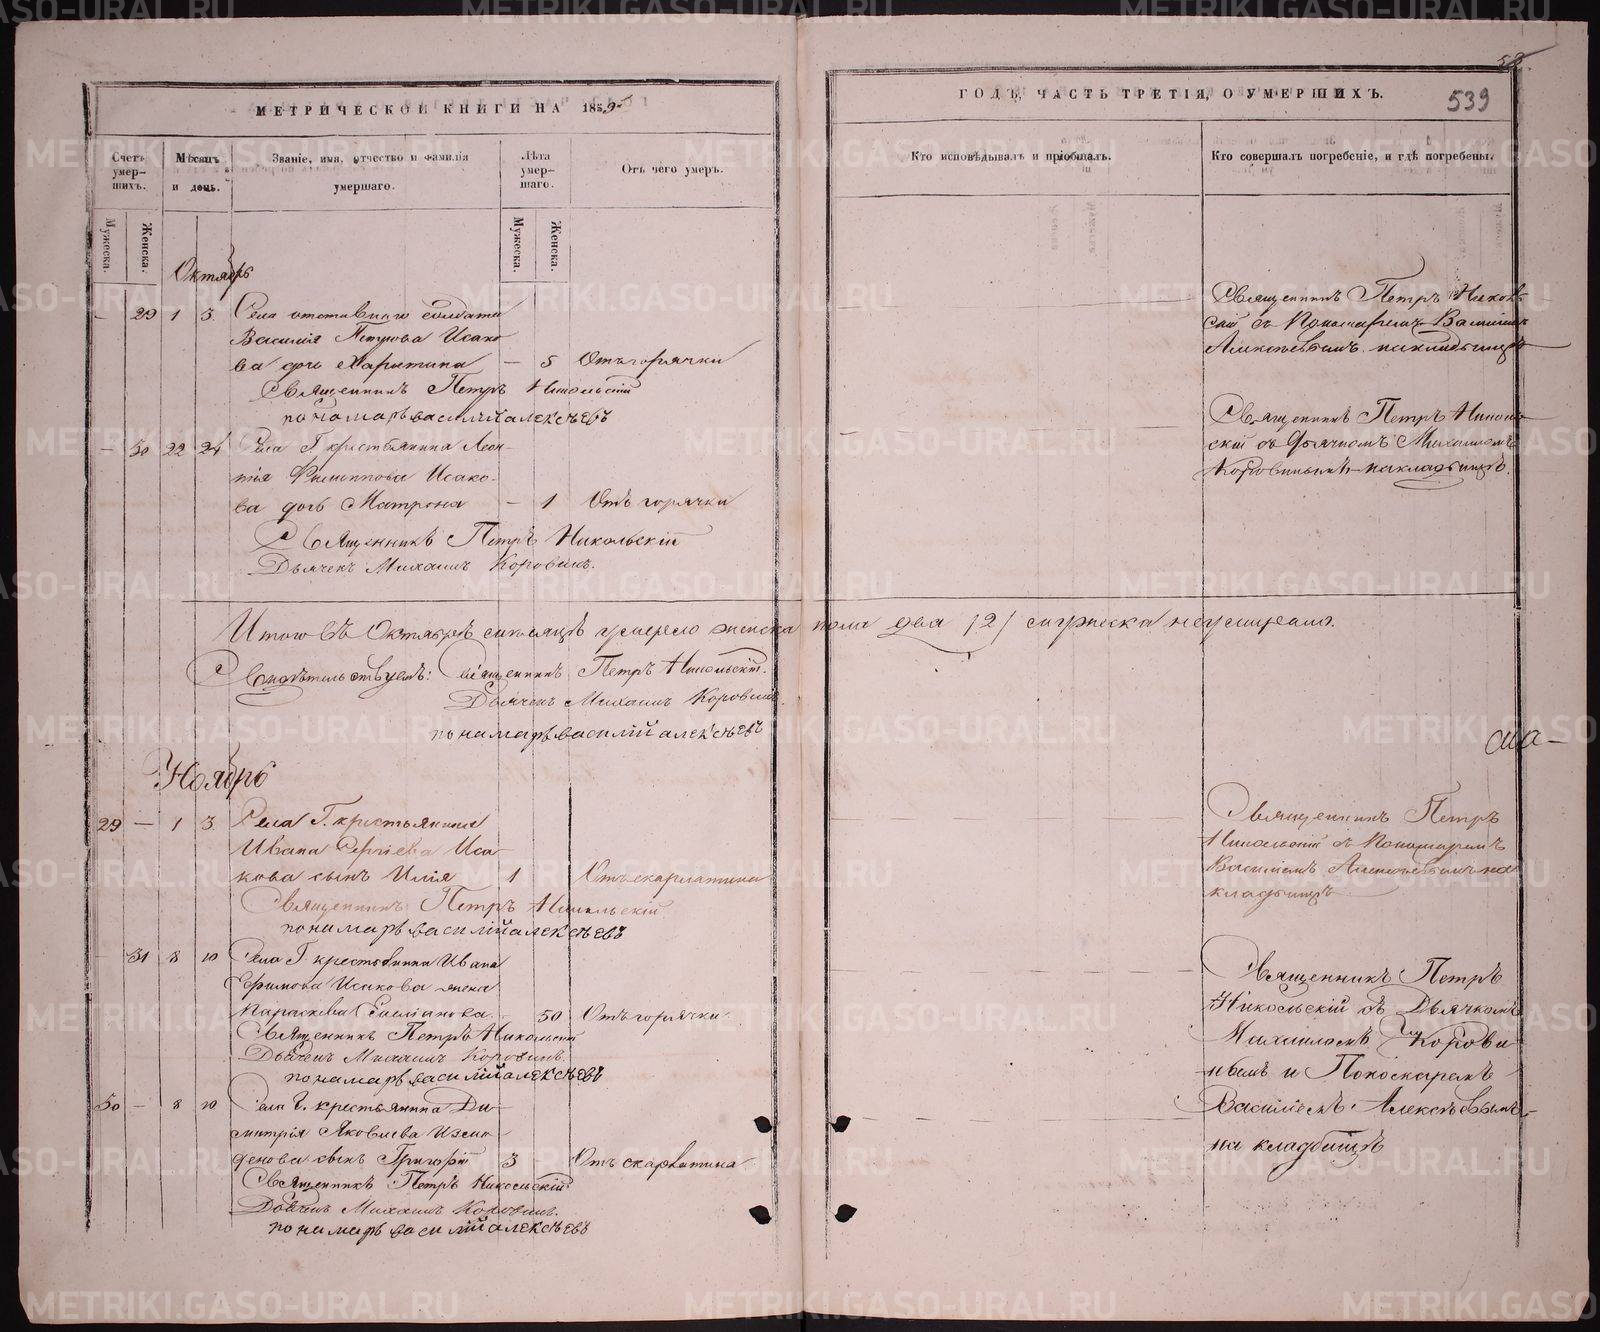 МЕТРИЧЕСКОЙ КНИГИ НА 1859
Счетъ умер-шихъ.
Мѣсяцъ и день.
Званіе, имя, отчество и фамилія умершаго.
Лѣта умер-шаго.
Отъ чего умеръ.
Мужеска.
Женска.
Мужеска.
Женска.
Октябрь
— 29 1 3 Села отставнаго солдата
Василія Петрова Исако
ва дочь Харитина — 5 Отъ горячки
Священникъ Петръ Никольскій
пономарь василій алексѣевъ
— 30 22 24 Села Г. крестьянина Леон-
тія Филиппова Исако-
ва дочь Матрона — 1 Отъ горячки
Священникъ Петръ Никольскій
Дьячекъ Михаилъ Коровинъ.
Итого въ Октябрѣ мѣсяцѣ умерло женска пола два /2/ а мужеска неумирало.
Свидѣтельствуемъ: Священникъ Петръ Никольскій.
Дьячекъ Михаилъ Коровинъ.
пономарь василій алексѣевъ
Ноябрь
29 — 1 3 Села Г. крестьянина
Ивана Сергіева Иса-
кова сынъ Илія 1 Отъ скарлатина
Священникъ Петръ Никольскій
пономарь василій алексѣевъ
— 31 8 10 Села Г. крестьянина Ивана
Ефимова Исакова жена
Параскева — 50 Отъ горячки
Священникъ Петръ Никольскій
Дьячекъ Михаилъ Коровинъ.
пономарь василій алексѣевъ
30 — 8 10 Села Г. крестьянина Ди-
митрія Яковлева Измо-
денова сынъ Григорій 3 Отъ скарлатина
Священникъ Петръ Никольскій
Дьячекъ Михаилъ Коровинъ.
пономарь василій алексѣевъ
58
ГОДЪ, ЧАСТЬ ТРЕТІЯ, О УМЕРШИХЪ.
539
Кто исповѣдывалъ и пріобщалъ.
Кто совершалъ погребеніе, и гдѣ погребены.
Священникъ Петръ Николь
скій съ Пономаремъ Василіемъ
Алексѣевымъ на кладбищѣ
Священникъ Петръ Николь
скій съ Дьячкомъ Михаиломъ
Коровинымъ на кладбищѣ.
Священникъ Петръ
Никольскій съ Пономаремъ
Василіемъ Алексѣевымъ на
кладбищѣ
Священникъ Петръ
Никольскій съ Дьячкомъ
Михаиломъ Корови
нымъ и Пономаремъ
Василіемъ Алексѣевымъ
на кладбищѣ
METRIKI.GASO-URAL.RU